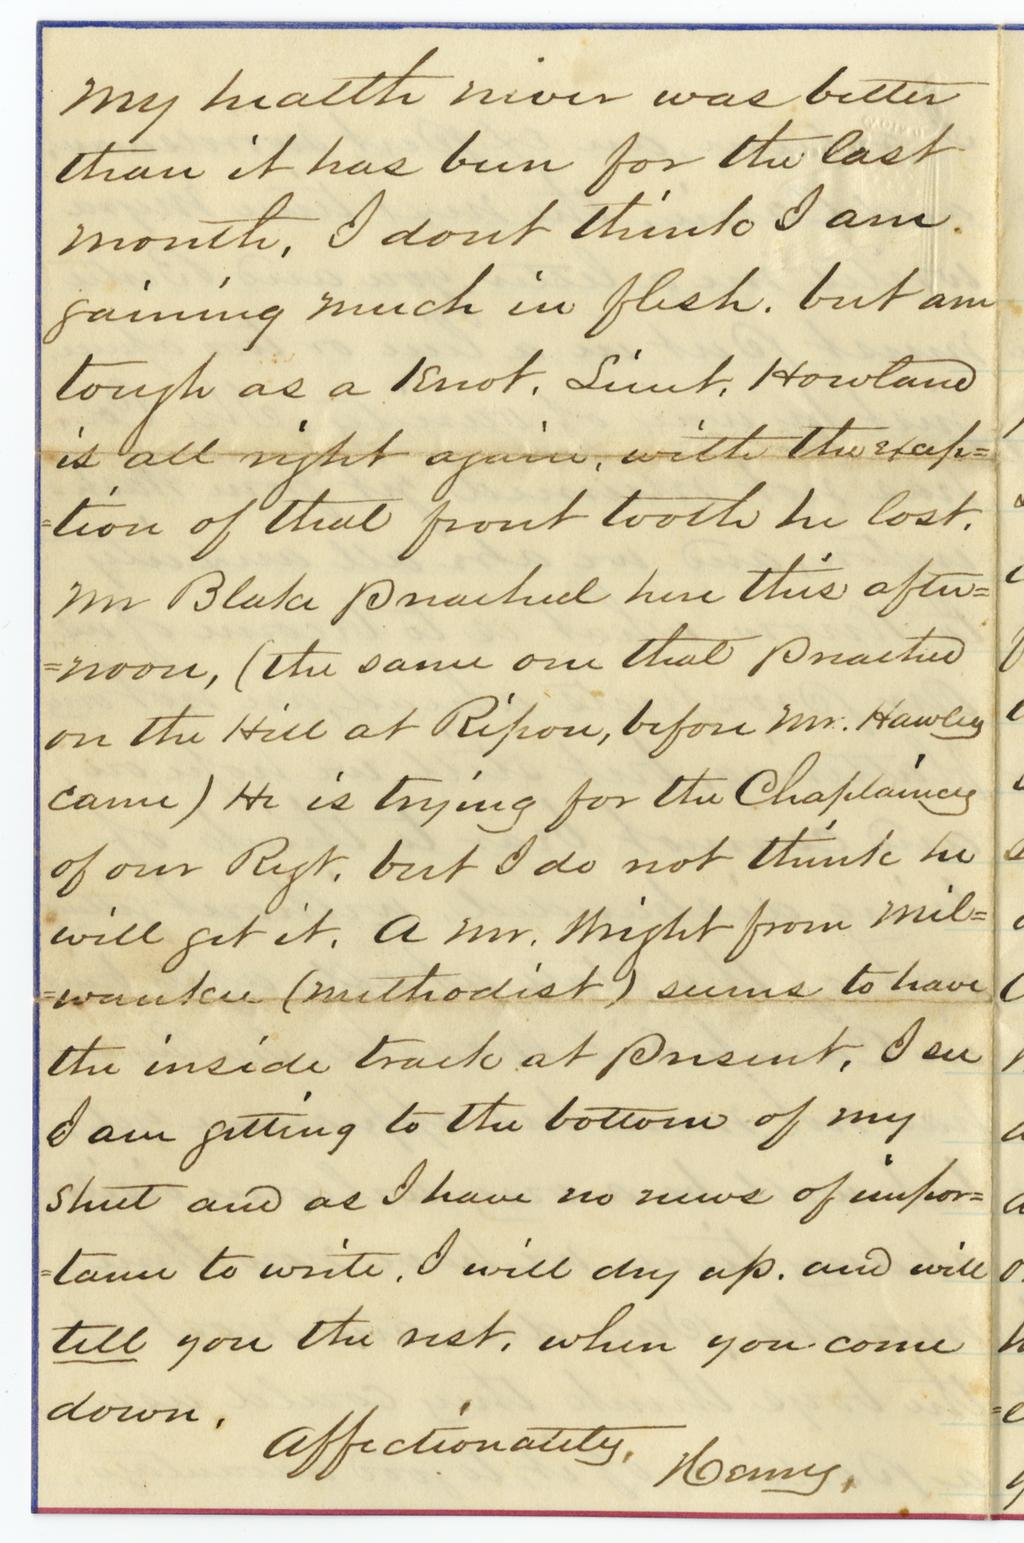 My health never was better
than it has been for the last
month, I dont think I am.
gaining much in flesh. but am
tough as a Knot. Lieut. Howland
is all right again, with the exap=
=tion of that front tooth he lost.
Mr Blake preached here this after=
=noon, (the same one that preached
on the Hill at Ripon, before Mr. Hawley
came) He is trying for the Chaplaincy
of our Regt. but I do not think he
will get it. A Mr. Wright from Mil=
=waukee (Methodist) seems to have
the inside track at present, I see
I am getting to the bottom of my
sheet and as I have no news of impor=
=tance to write. I will dry up. and will
tell you the rest. when you come
down.
Affectionately,
Henry,